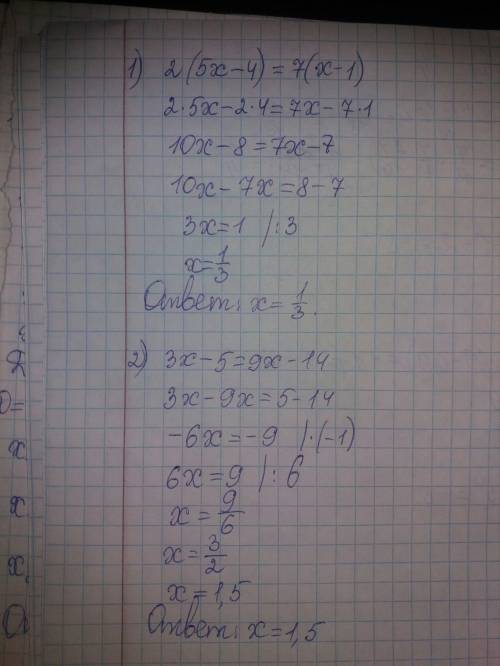 1) 2(5x-4)=7(x-1)
2·5x-2·4=7x-7·1
10x-8=7x-7
10x-7x=8-7
3x=1 /:3
x=1/3
Ответ: x=1/3.
2) 3x-5=9x-14
3x-9x=5-14
-6x=-9 /·(-1)
6x=9 /:6
x=9/6
x=3/2
x=1,5
Ответ: x=1,5